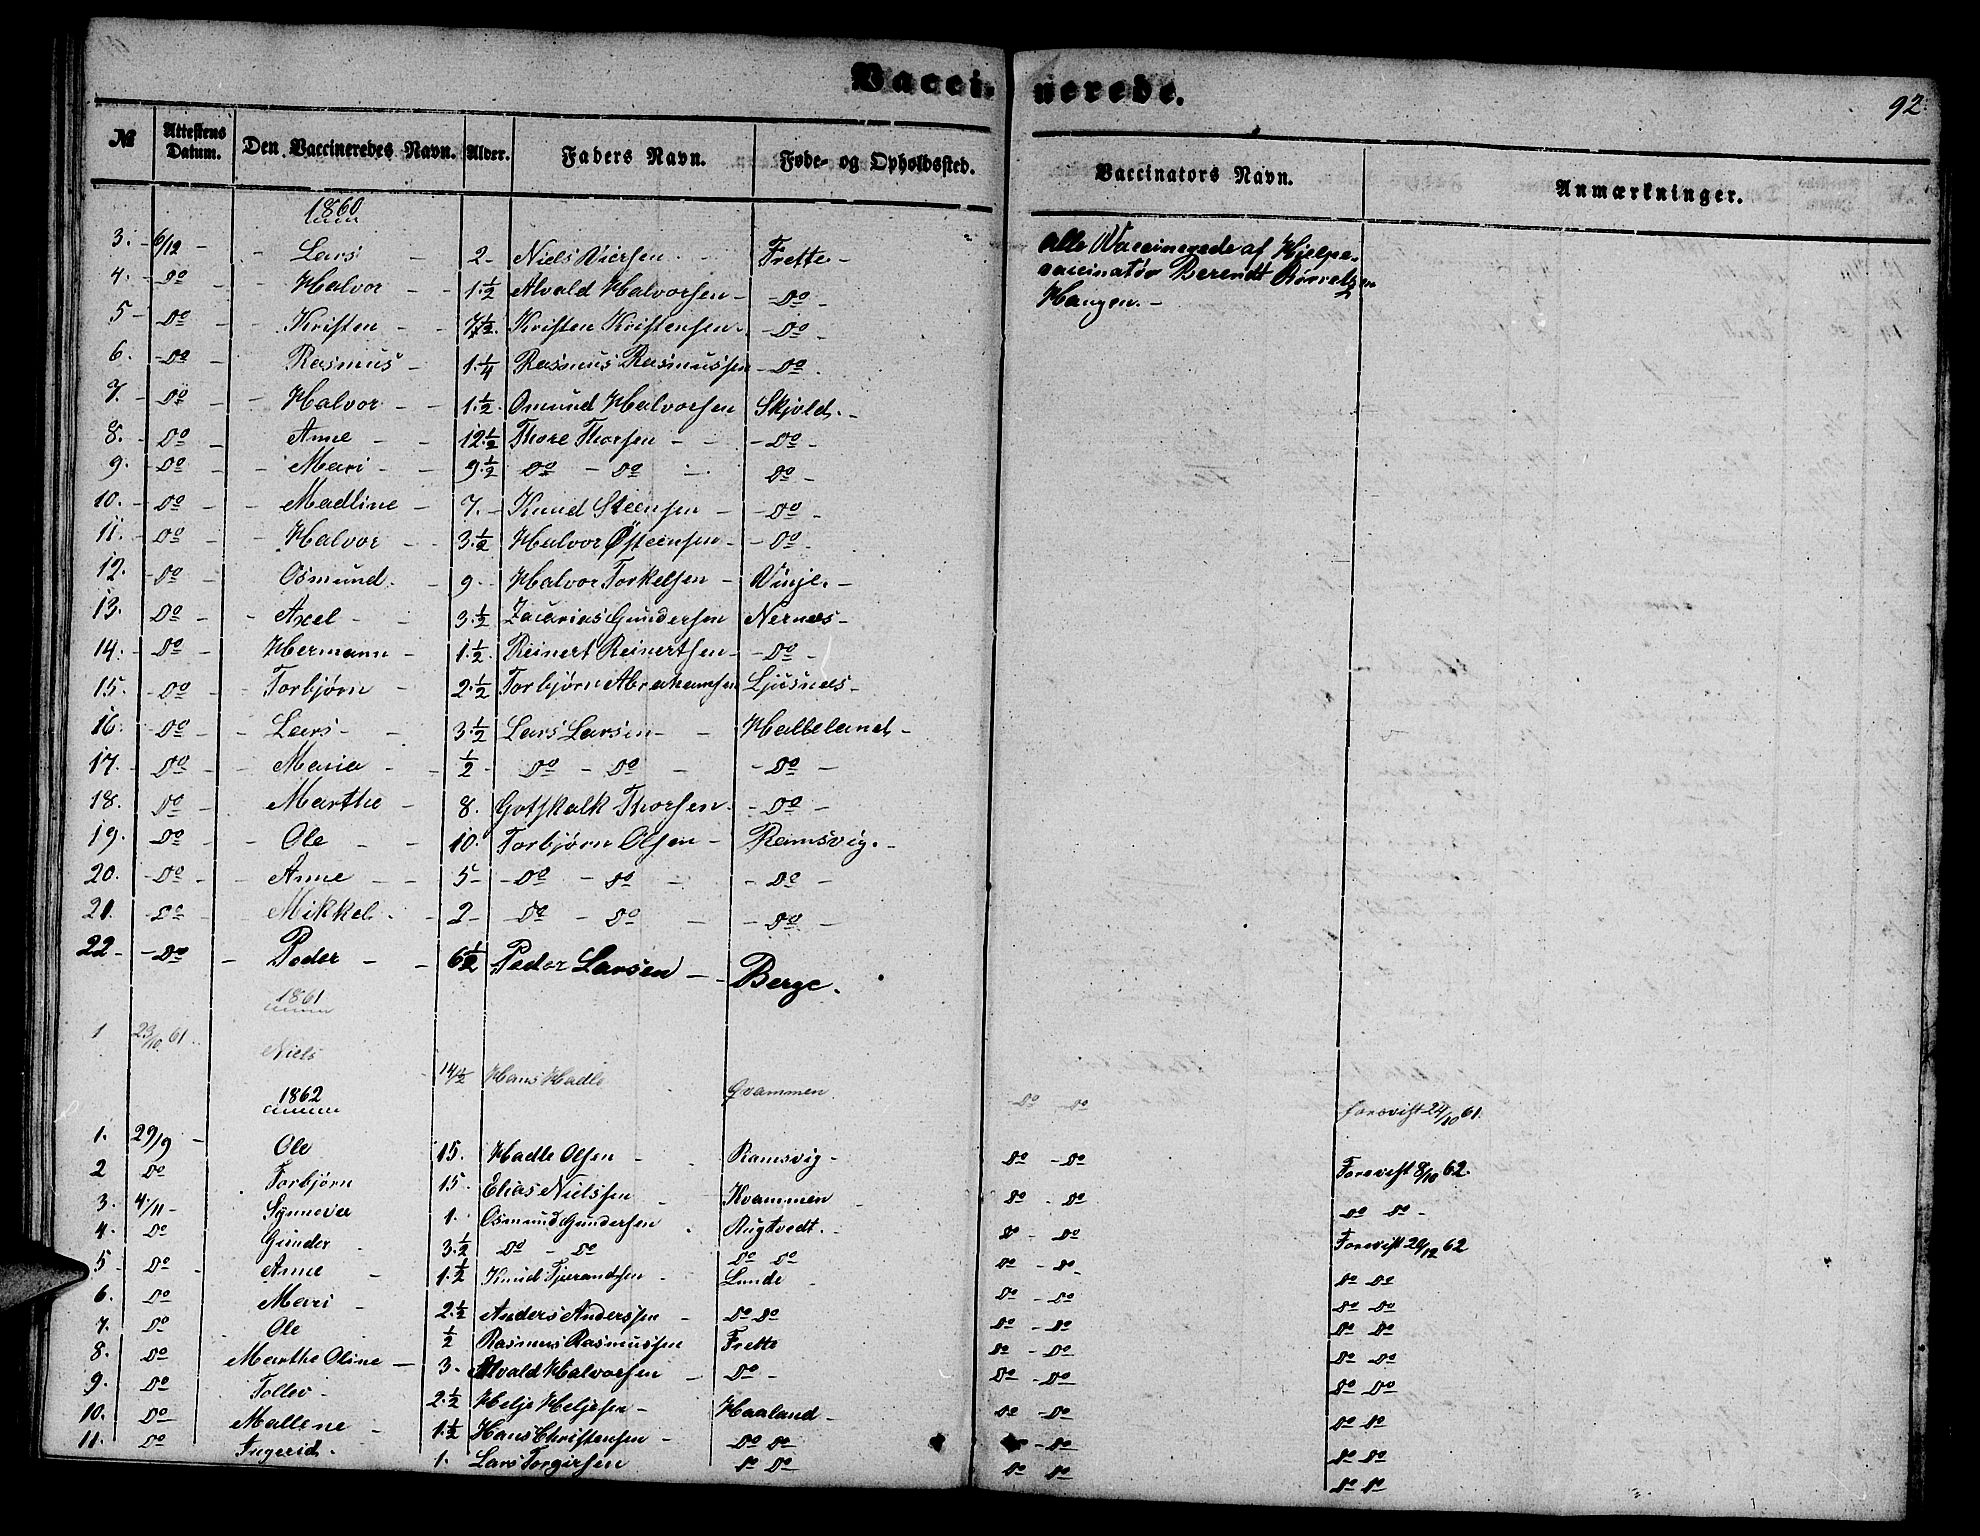 Vaccinerede.
92
№ Attestens Datum. Den Vaccineredes Navn. Alder. Faders Navn. Føde- og Opholdssted. Vaccinators Navn. Anmærkninger.
1860
3. 6/12 Lars 2 Niels Viersen Frette Alle Vaccinerede af Hjelpe-
vaccinatør Berendt
Haugen.
4. Do Halvor 1 1/2 Alvald Halvorsen Do
5 Do Kristen 7 1/2 Kristen Kristensen Do
6. Do Rasmus 1 1/4 Rasmus Rasmussen Do
7. Do Halvor 1 1/2 Omund Halvorsen Skjold
8. Do Anne 12 1/2 Thore Thorsen Do
9. Do Mari 9 1/2 Do Do Do
10. Do Madline 7. Knud Steensen Do
11. Do Halvor 3 1/2 Halvor Østeensen Do
12. Do Osmund 9 Halvor Torkelsen Vinje
13. Do Axel 3 1/2 Zacarias Gundersen Nernæs
14. Do Hermann 1 1/2 Reinert Reinertsen Do
15. Do Torbjørn 2 1/2 Torbjørn Abrahamsen Ljusnæs
16 Do Lars 3 1/2 Lars Larsen Halleland
17. Do Maria 1/2 Do Do Do
18. Do Marthe 8. Gotskalk Thorsen Do
19. Do Ole 10. Torbjørn Olsen Ramsvig.
20. Do Anne 5 Do Do Do
21. Do Mikkel 2 Do Do Do
22 Do Peder 6 1/2 Peder Larsen Berge.
1861
1 23/10 61. Niels 14 1/2 Hans Hadle Qvammen Do Do forevist 24/10 61.
1862
1. 29/9 Ole 15. Hadle Olsen Ramsvig Do Do Forevist 8/10 62.
2 Do Torbjørn 15. Elias Nielssen Kvammen Do Do Do Do
3. 4/11 Synneva 1. Osmund Gundersen Rugtvedt Do Do Forevist 20/12 62
4. Do Gunder 3 1/2 Do Do Do Do Do Do Do Do
5 Do Anne 1 1/2 Knud Tjerandsen Lunde Do Do Do Do
6. Do Mari 2 1/2 Anders Anderssen Do Do Do Do Do Do
7. Do Ole 1/2 Rasmus Rasmussen Frette Do Do Do Do
8. Do Marthe Oline 3. Alvald Halvorsen Do Do Do Do Do
9. Do Tollev 2 1/2 Helje Heljesen Haaland Do Do Do Do
10. Do Mallene 1 1/2 Hans Christensen Do Do Do Do Do
11. Do Ingerid 1. Lars Torgirsen Do Do Do Do Do Do